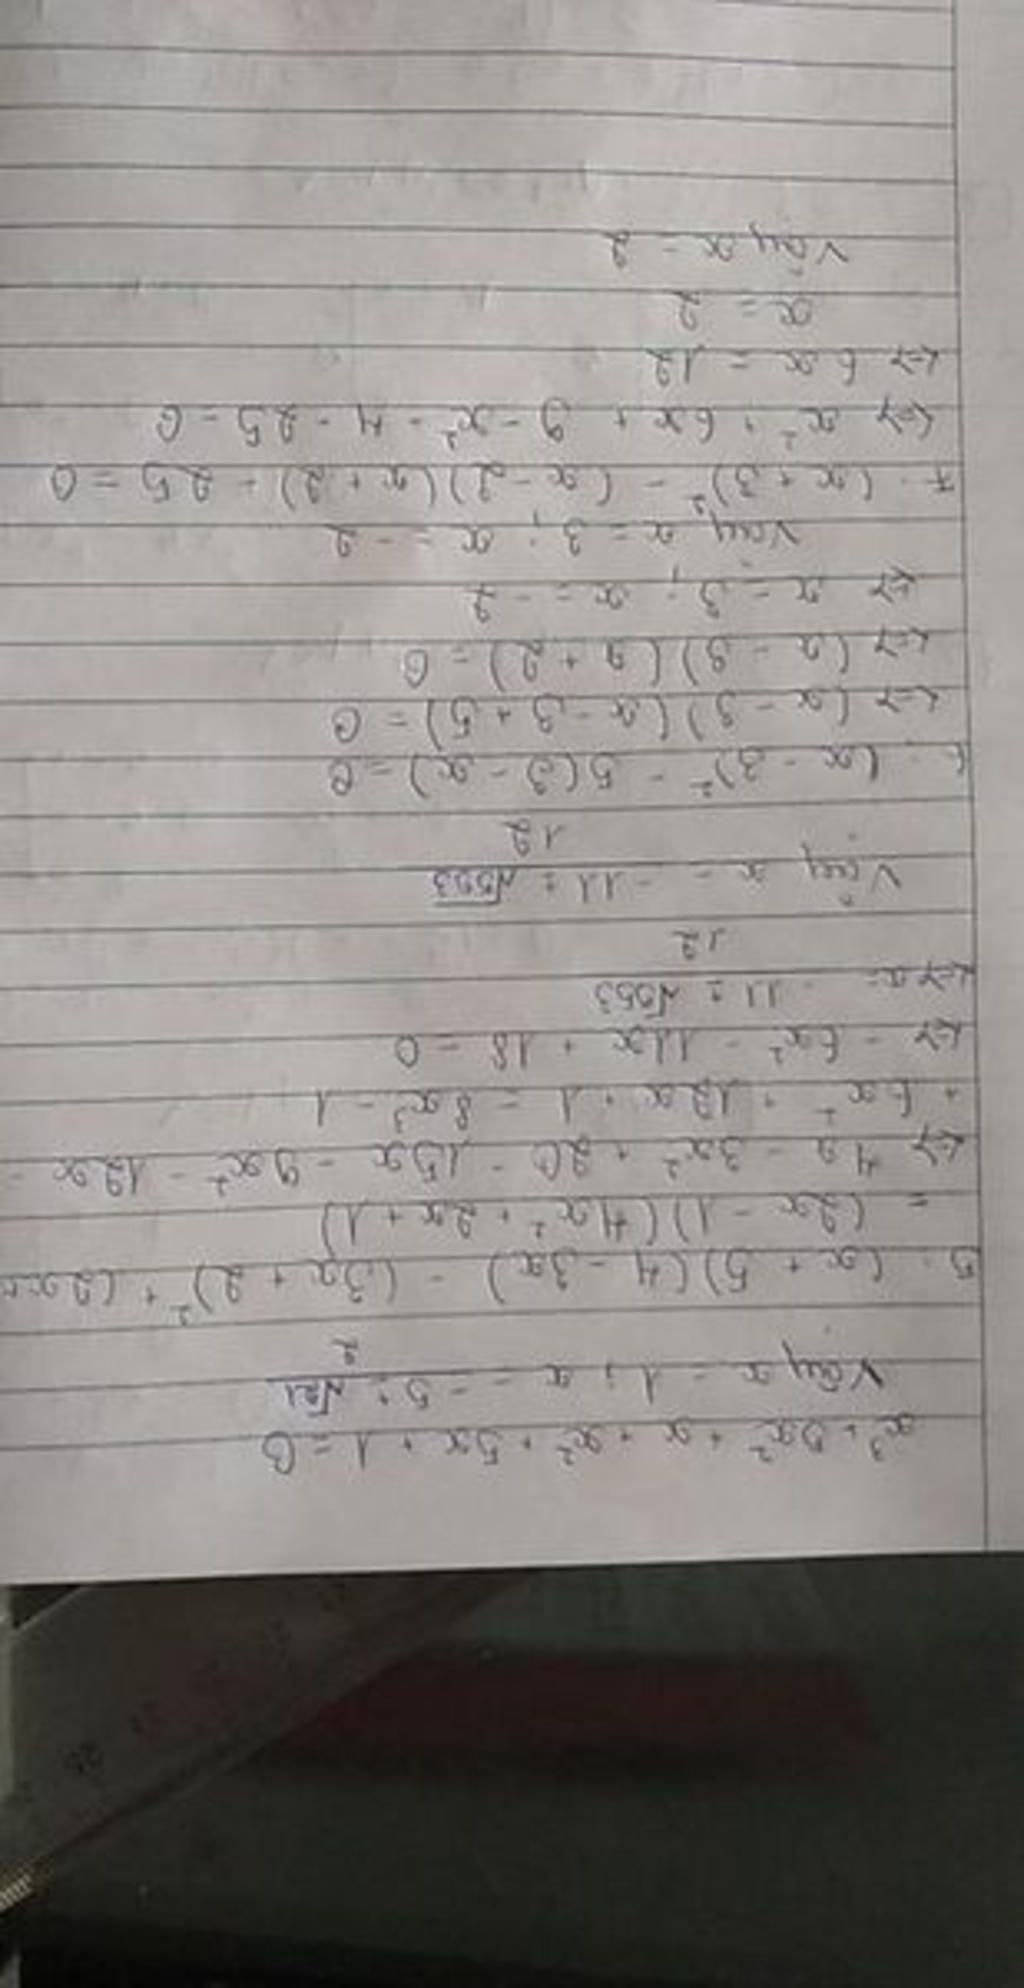 x³ + 5x² + x + x² + 5x + 1 = 0
Vậy x = 1 ; x = -5 ± √21 / 2
5. (x + 5)(4 - 3x) - (3x + 2)² + (2x +
= (2x - 1)(4x² + 2x + 1)
<=> 4x - 3x² + 20 - 15x - 9x² - 12x -
+ 6x² + 12x + 1 = 8x³ - 1
<=> - 6x² - 11x + 18 = 0
<=> x = 11 ± √553 / 12
Vậy x = -11 ± √553 / 12
6. (x - 3)² - 5(3 - x) = 0
<=> (x - 3)(x - 3 + 5) = 0
<=> (x - 3)(x + 2) = 0
<=> x = 3 ; x = -2
Vậy x = 3 ; x = -2
7. (x + 3)² - (x - 2)(x + 2) - 25 = 0
<=> x² + 6x + 9 - x² - 4 - 25 = 0
<=> 6x = 12
x = 2
Vậy x = 2